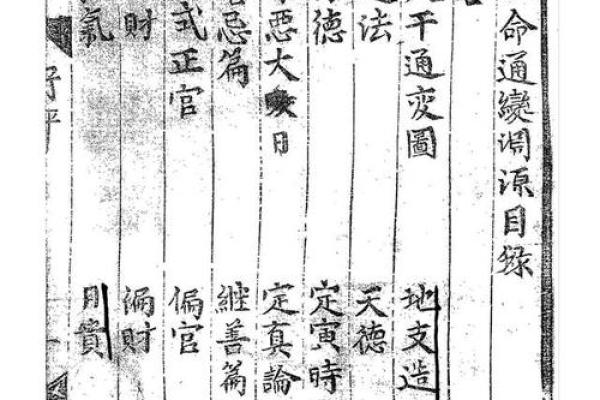 命通變淵源目录
干通変圖 地支造
法 天德
德 定寅時
惡大 日 定真論
忌篇 継善篇
式正官 偏官
財 偏財
氣 日貴
子平